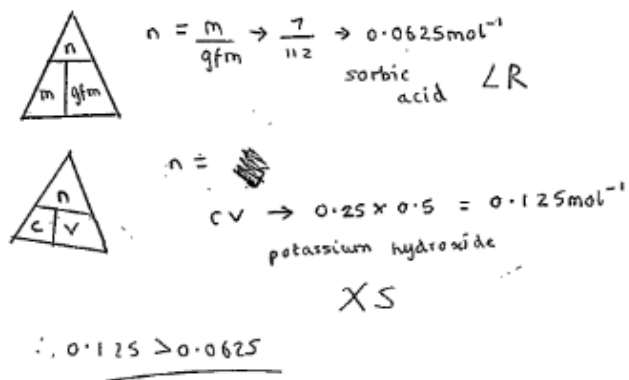 n = m/gfm → 7/112 → 0.0625mol⁻¹
n
m gfm
sorbic
acid LR
n =
n
c v
cv → 0.25 x 0.5 = 0.125mol⁻¹
potassium hydroxide
XS
∴ 0.125 > 0.0625